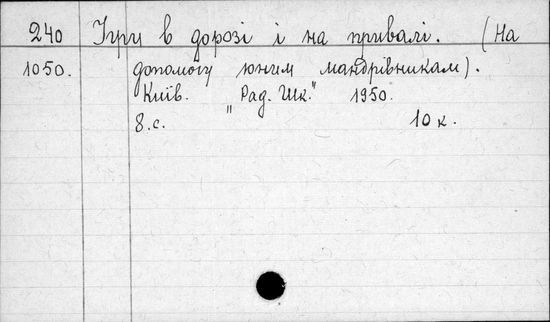 240 Ігри в дорозі і на привалі. (На
1050. допомогу юним мандрівникам).
Київ. "Рад. Шк." 1950.
8.с. 10 к.